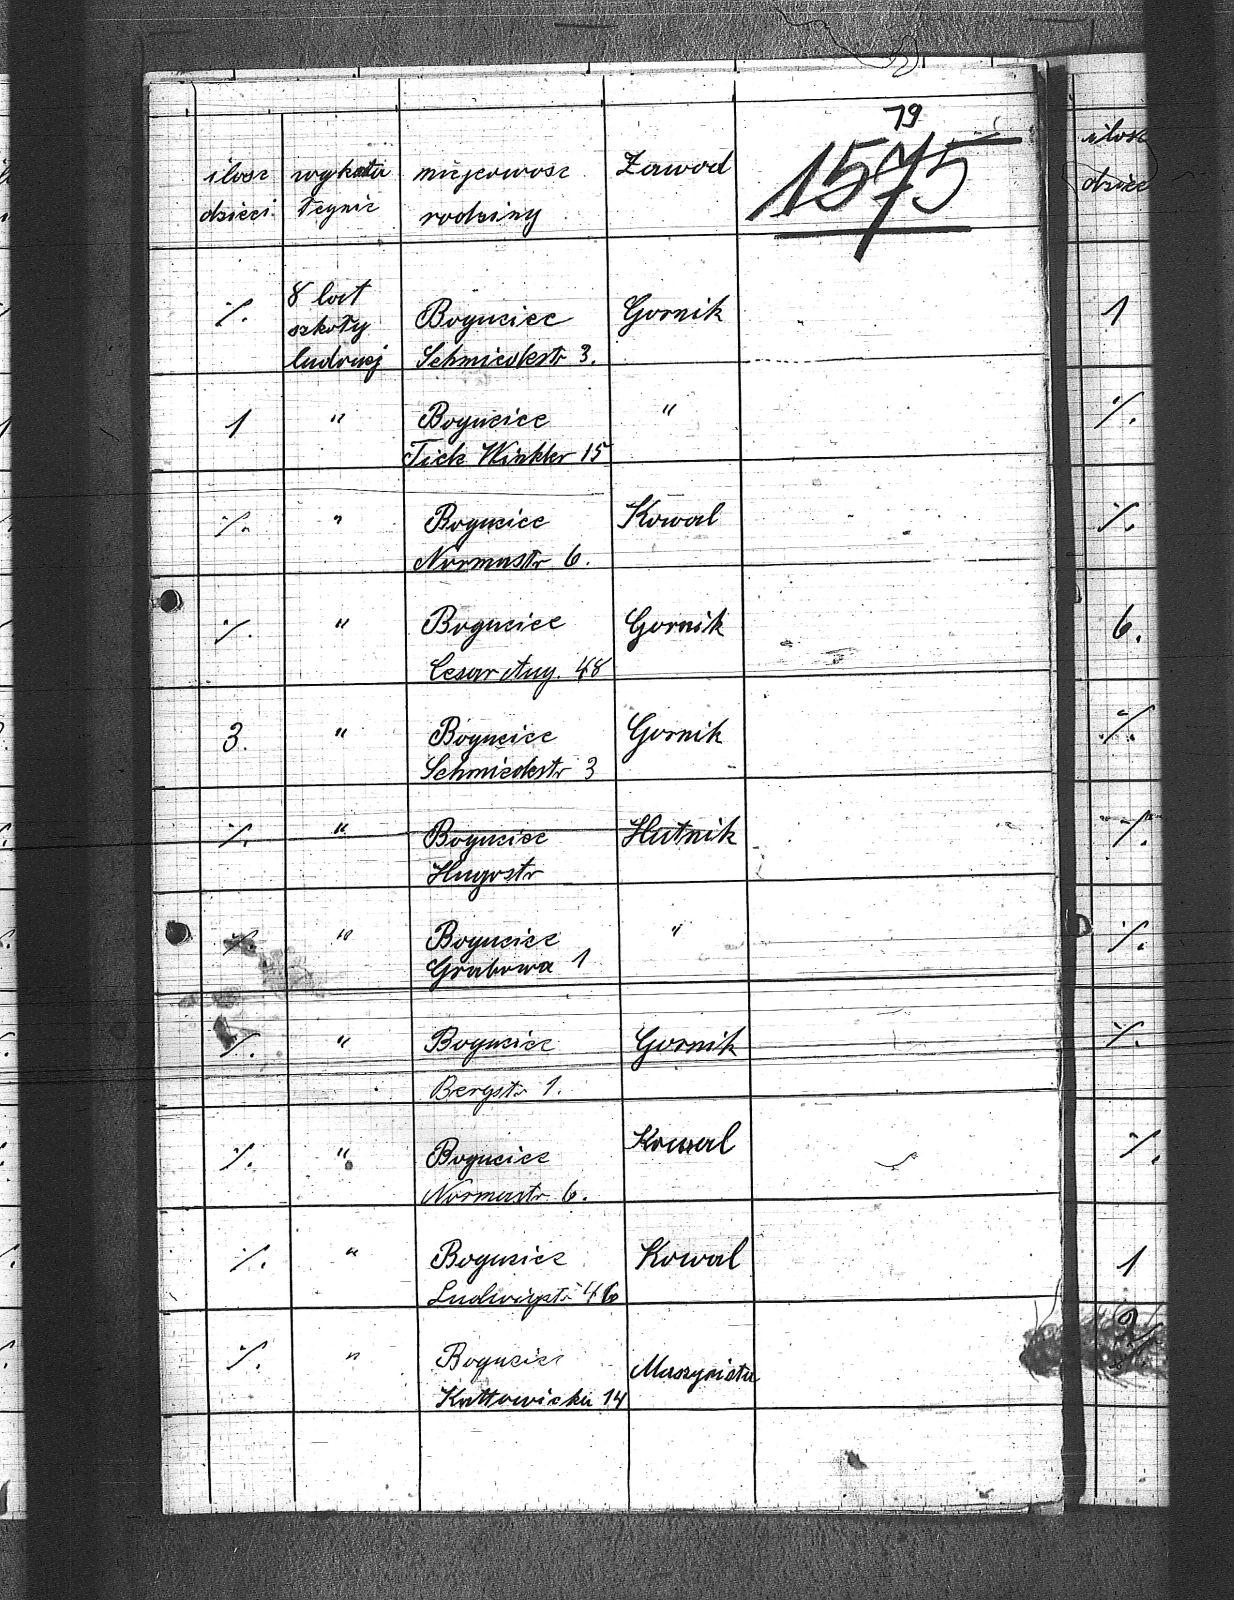 79
1575
ilosc wykształ miejcowosc Zawod ilosc
dzieci. cenie rodziny dziec
8 lat
%. szkoły Bogucice Gornik 1
ludowej Schmiedestr 3.
1 " Bogucice " %.
Tiele Winkler 15
%. " Bogucice Kowal %.
Normastr 6.
%. " Bogucice Gornik 6.
Cesar Aug. 48
3. " Bogucice Gornik %.
Schmiedestr 3
%. " Bogucice Hutnik %.
Hugostr
%. " Bogucice " %.
Grabowa 1
%. " Bogucice Gornik %.
Bergstr 1.
%. " Bogucice Kowal %.
Normastr. 6.
%. " Bogucice Kowal 1
Ludwigstr 46
%. " Bogucice Maszynista
Kattowicka 14